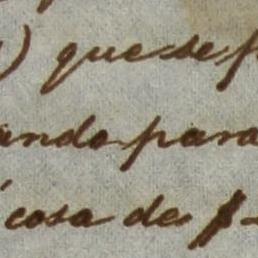 ) que se f
ando para
cosa de